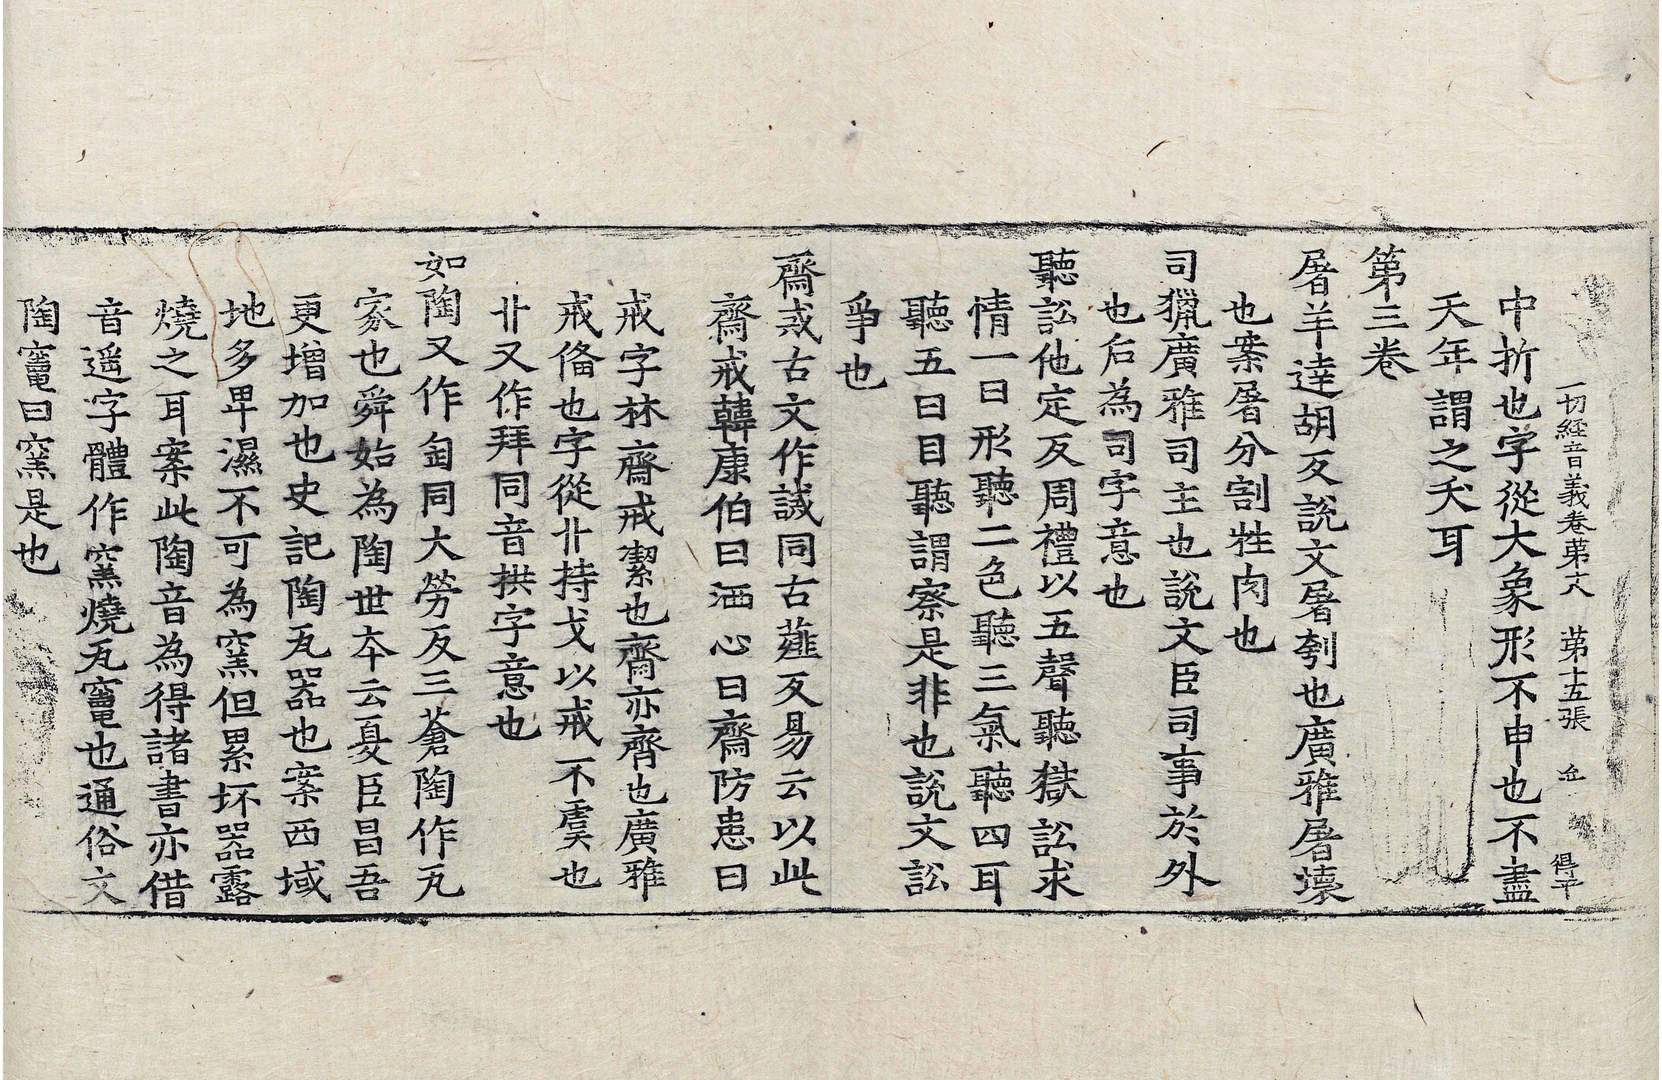 一切経音義卷苐六　苐十五張　仝　得平
中折也字從大象形不申也不盡
天年謂之夭耳
第三卷
屠羊達胡反說文屠刳也廣雅屠壊
也案屠分割牲肉也
司獵廣雅司主也說文臣司事於外
也后為司字意也
聽訟他定反周禮以五聲聽獄訟求
情一曰形聽二色聽三氣聽四耳
聽五曰目聽謂察是非也說文訟
爭也
齋戒古文作誡同古薤反易云以此
齋戒韓康伯曰洒心曰齋防患曰
戒字林齋戒潔也齋亦齊也廣雅
戒俻也字從廾持戈以戒不虞也
廾又作拜同音拱字意也
如陶又作匋同大勞反三蒼陶作瓦
家也舜始為陶世夲云夏臣昌吾
更增加也史記陶瓦器也案西域
地多卑濕不可為窯但累坏器露
燒之耳案此陶音為得諸書亦借
音遥字體作窯燒瓦竈也通俗文
陶竈曰窯是也